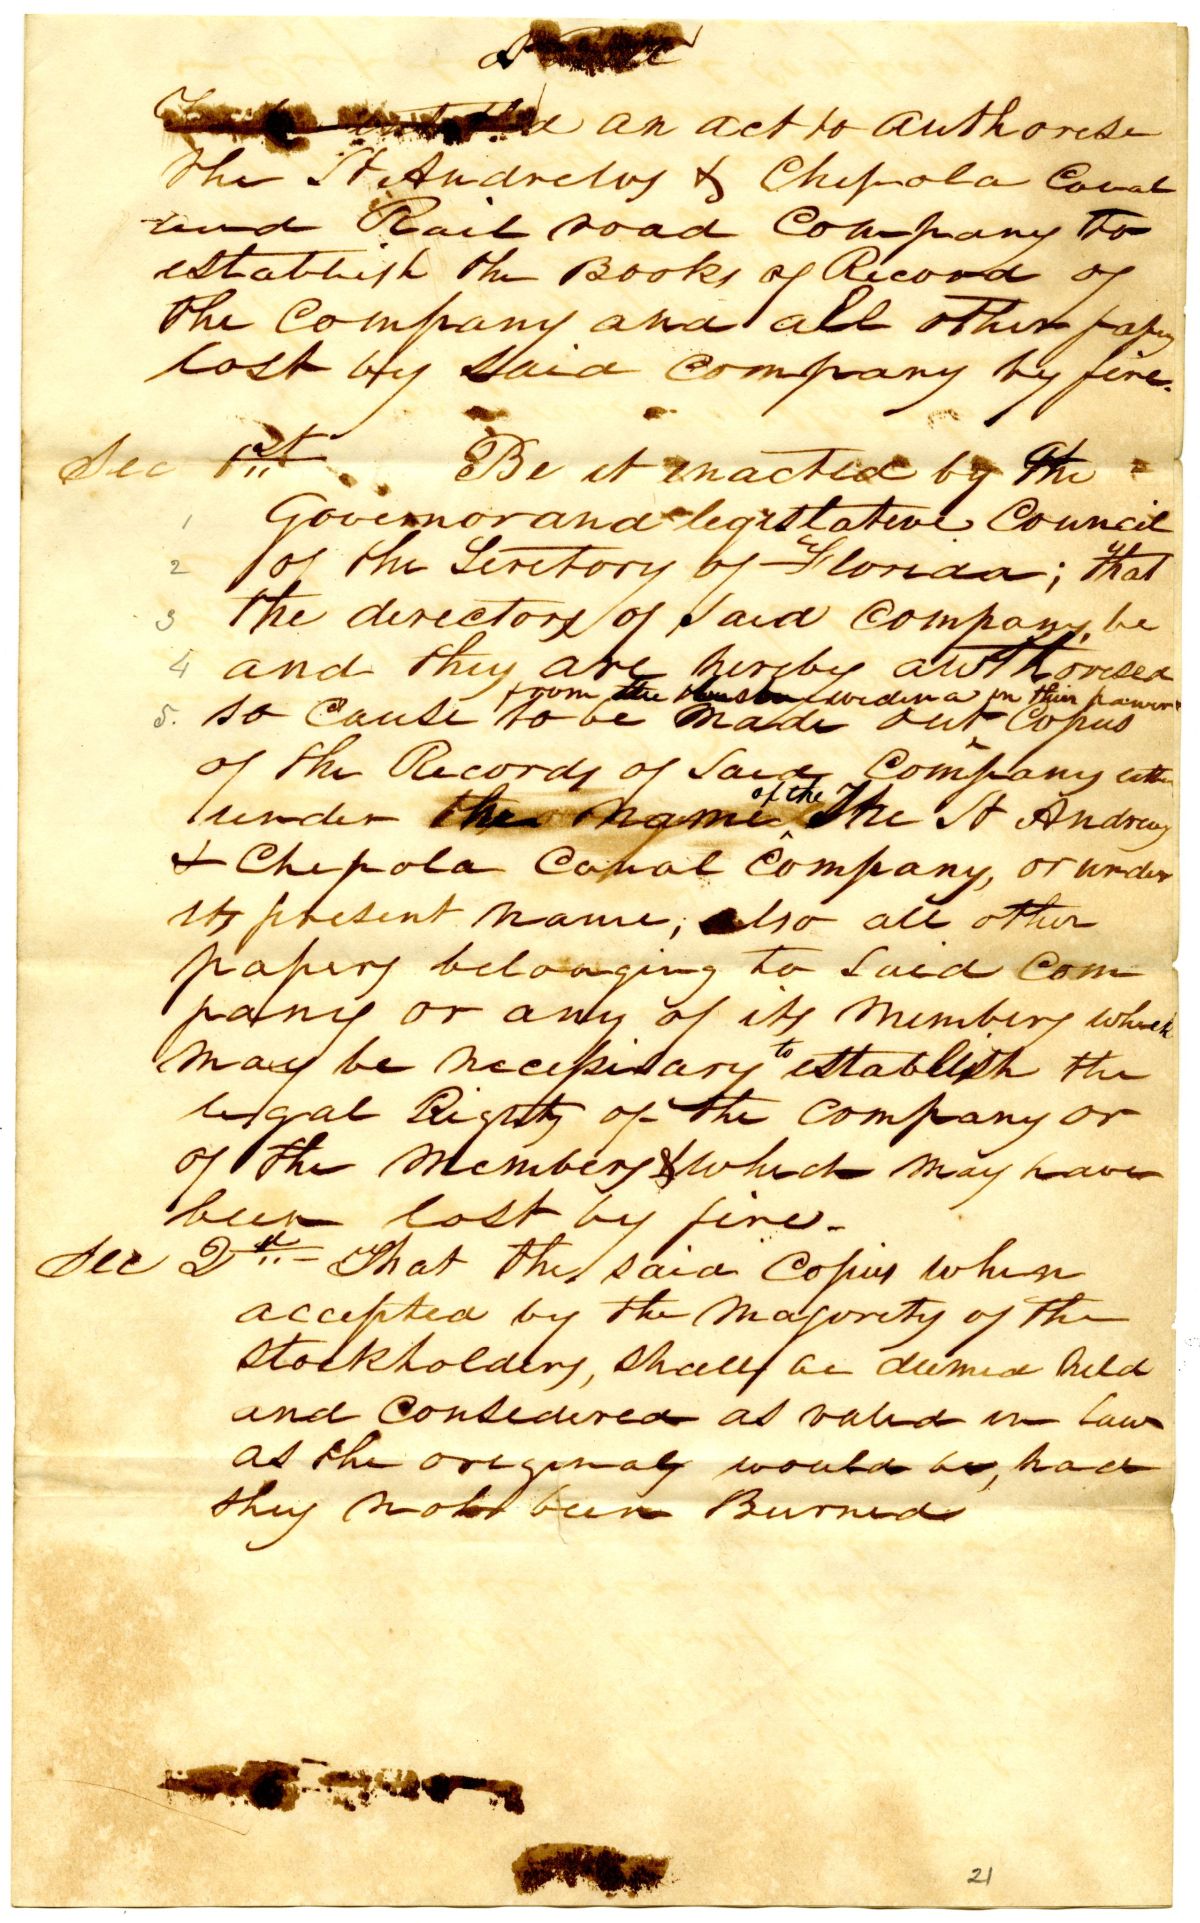 an act to authorese
the St. Andrews & Chepola Canal
and Rail road Company to
establish the Books of Record of
the Company and all other papers
lost by said Company by fire.
Sec 1st Be it enacted by the
1 Governor and legeslateve Council
2 of the Teretory of Florida; that
3 the derectors of said Company, be
4 and they are hereby authoresed
from the in their power
5. to cause to be made out Copies
of the Records of said Company either
under the name of the The St Andrews
& Chepola Canal Company, or under
its present name; also all other
papers belonging to said Com
pany or any of its members which
may be necessary to establish the
legal Rights of the Company or
of the members & which may have
been lost by fire.
Sec 2nd That the said Copies when
accepted by the majorety of the
stockholders, shall be deemed held
and consedered as valed in law
as the originals would be, had
they not been Burned
21